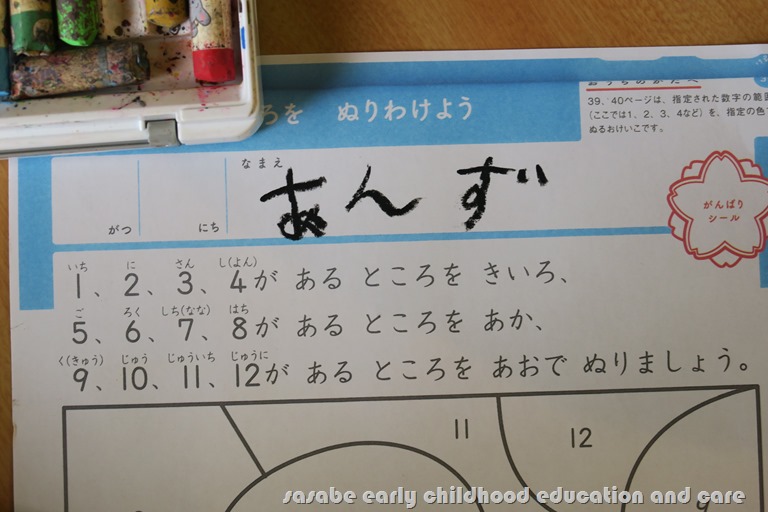 ろを ぬりわけよう
おうちのかたへ
39、40ページは、指定された数字の範
(ここでは1、2、3、4など)を、指定の色
ぬるおけいこです。
がつ
にち
なまえ
あんず
がんばり
シール
いち に さん し(よん)
1、2、3、4が ある ところを きいろ、
ご ろく しち(なな) はち
5、6、7、8が ある ところを あか、
く(きゅう) じゅう じゅういち じゅうに
9、10、11、12が ある ところを あおで ぬりましょう。
11
12
sasabe early childhood education and care